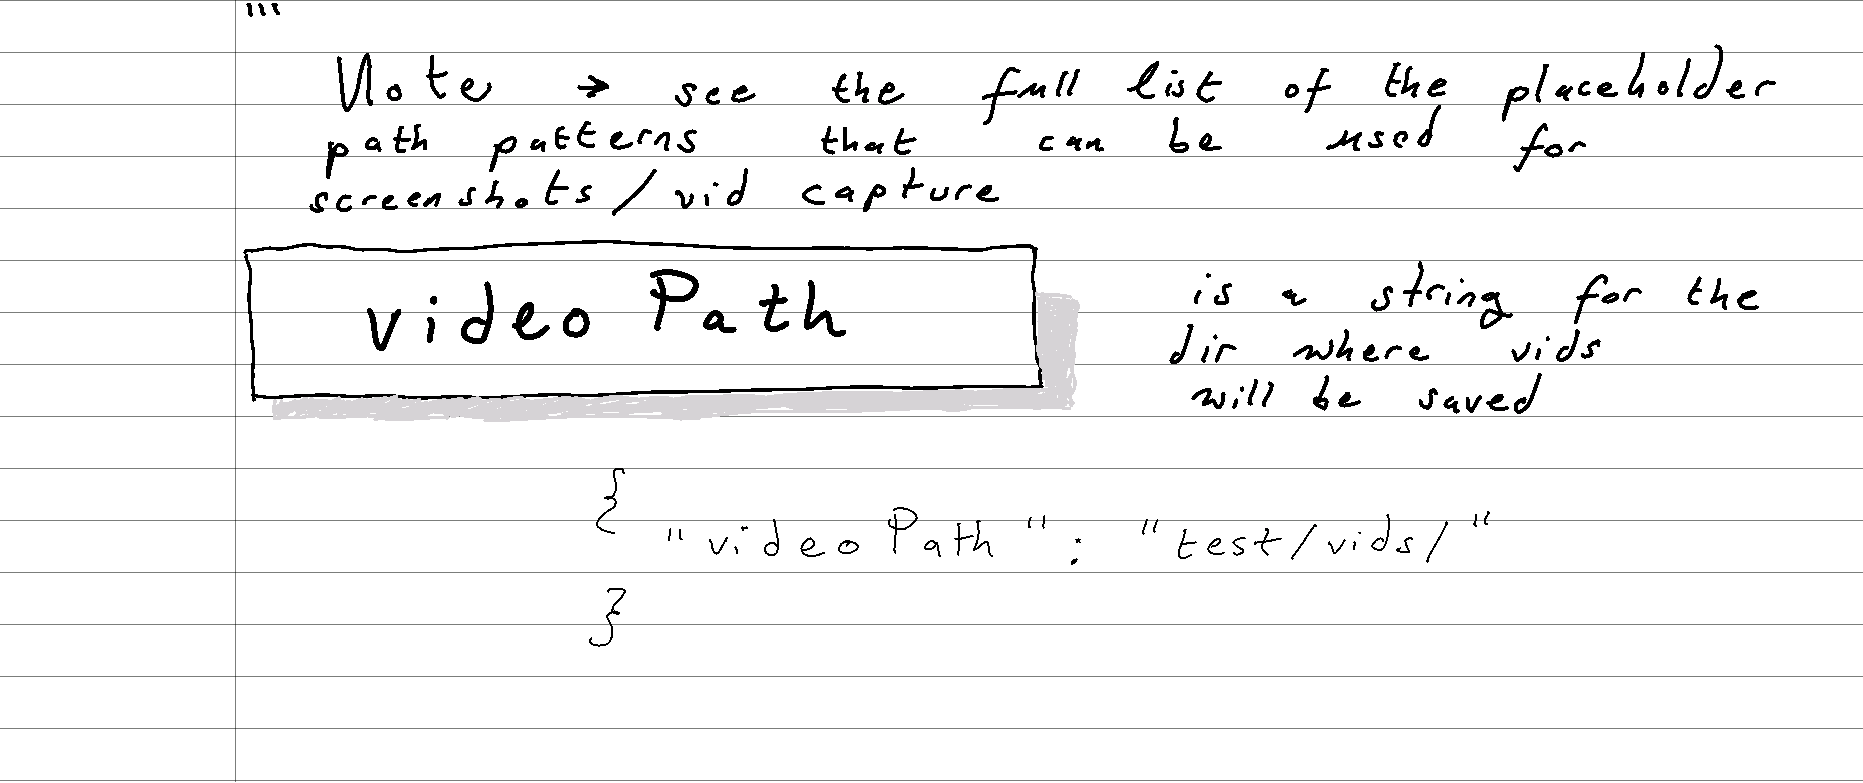 '''
Note → see the full list of the placeholder
path patterns that can be used for
screenshots / vid capture
video Path
is a string for the
dir where vids
will be saved
{
"video Path" : "test/vids/"
}